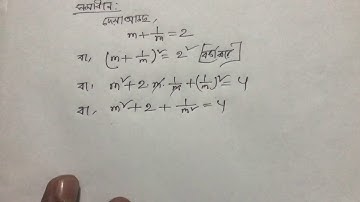 সমাধান:
দেওয়া আছে,
m + 1/m = 2
বা, (m + 1/m)² = 2²
বা, m² + 2 · m · 1/m + (1/m)² = 4
বা, m² + 2 + 1/m² = 4